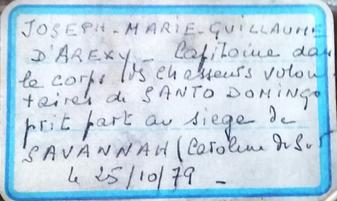 JOSEPH-MARIE-GUILLAUME
D'AREXY - Capitaine dans
le corps des chasseurs volon
taires de SANTO DOMINGO
prit part au siege de
SAVANNAH (Caroline du Sud
le 25/10/79 -